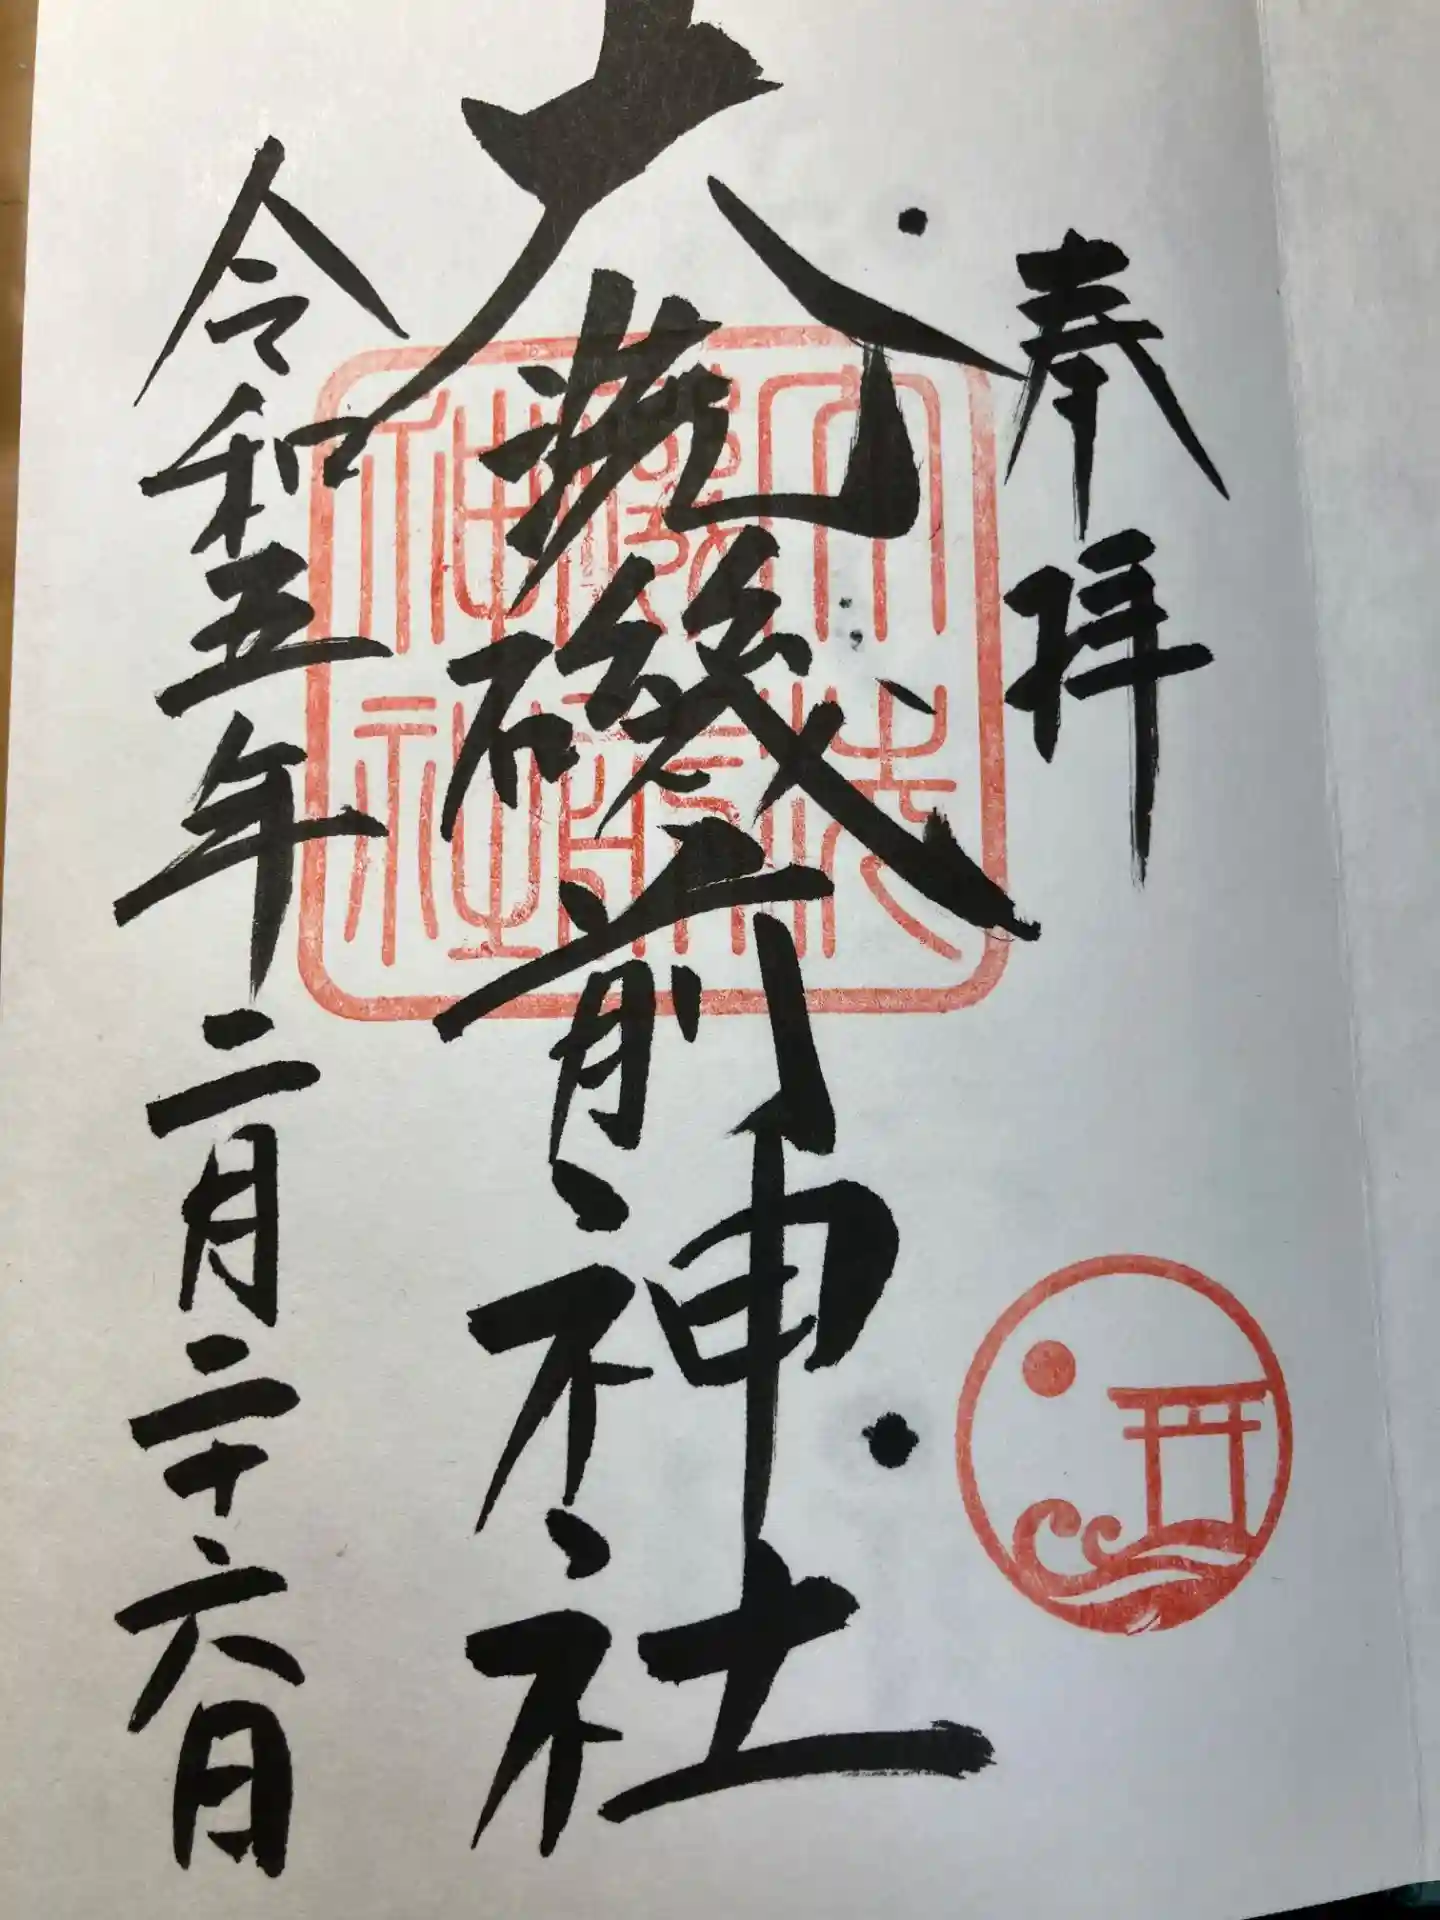 奉拝
大洗磯前神社
大洗磯前神社
令和五年二月二十六日